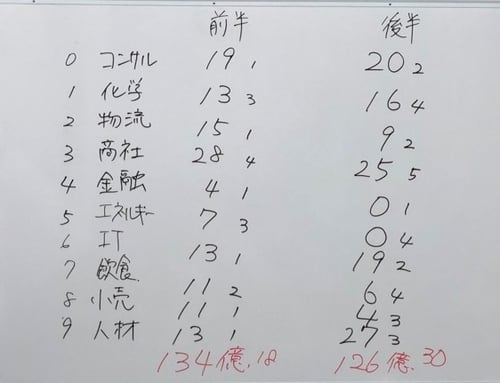 前半 後半
0 コンサル 19 1 20 2
1 化学 13 3 16 4
2 物流 15 1 9 2
3 商社 28 4 25 5
4 金融 4 1 0 1
5 エネルギー 7 3 0 4
6 IT 13 1 19 2
7 飲食 11 2 6 4
8 小売 11 1 4 3
9 人材 13 1 27 3
134億.18 126億.30